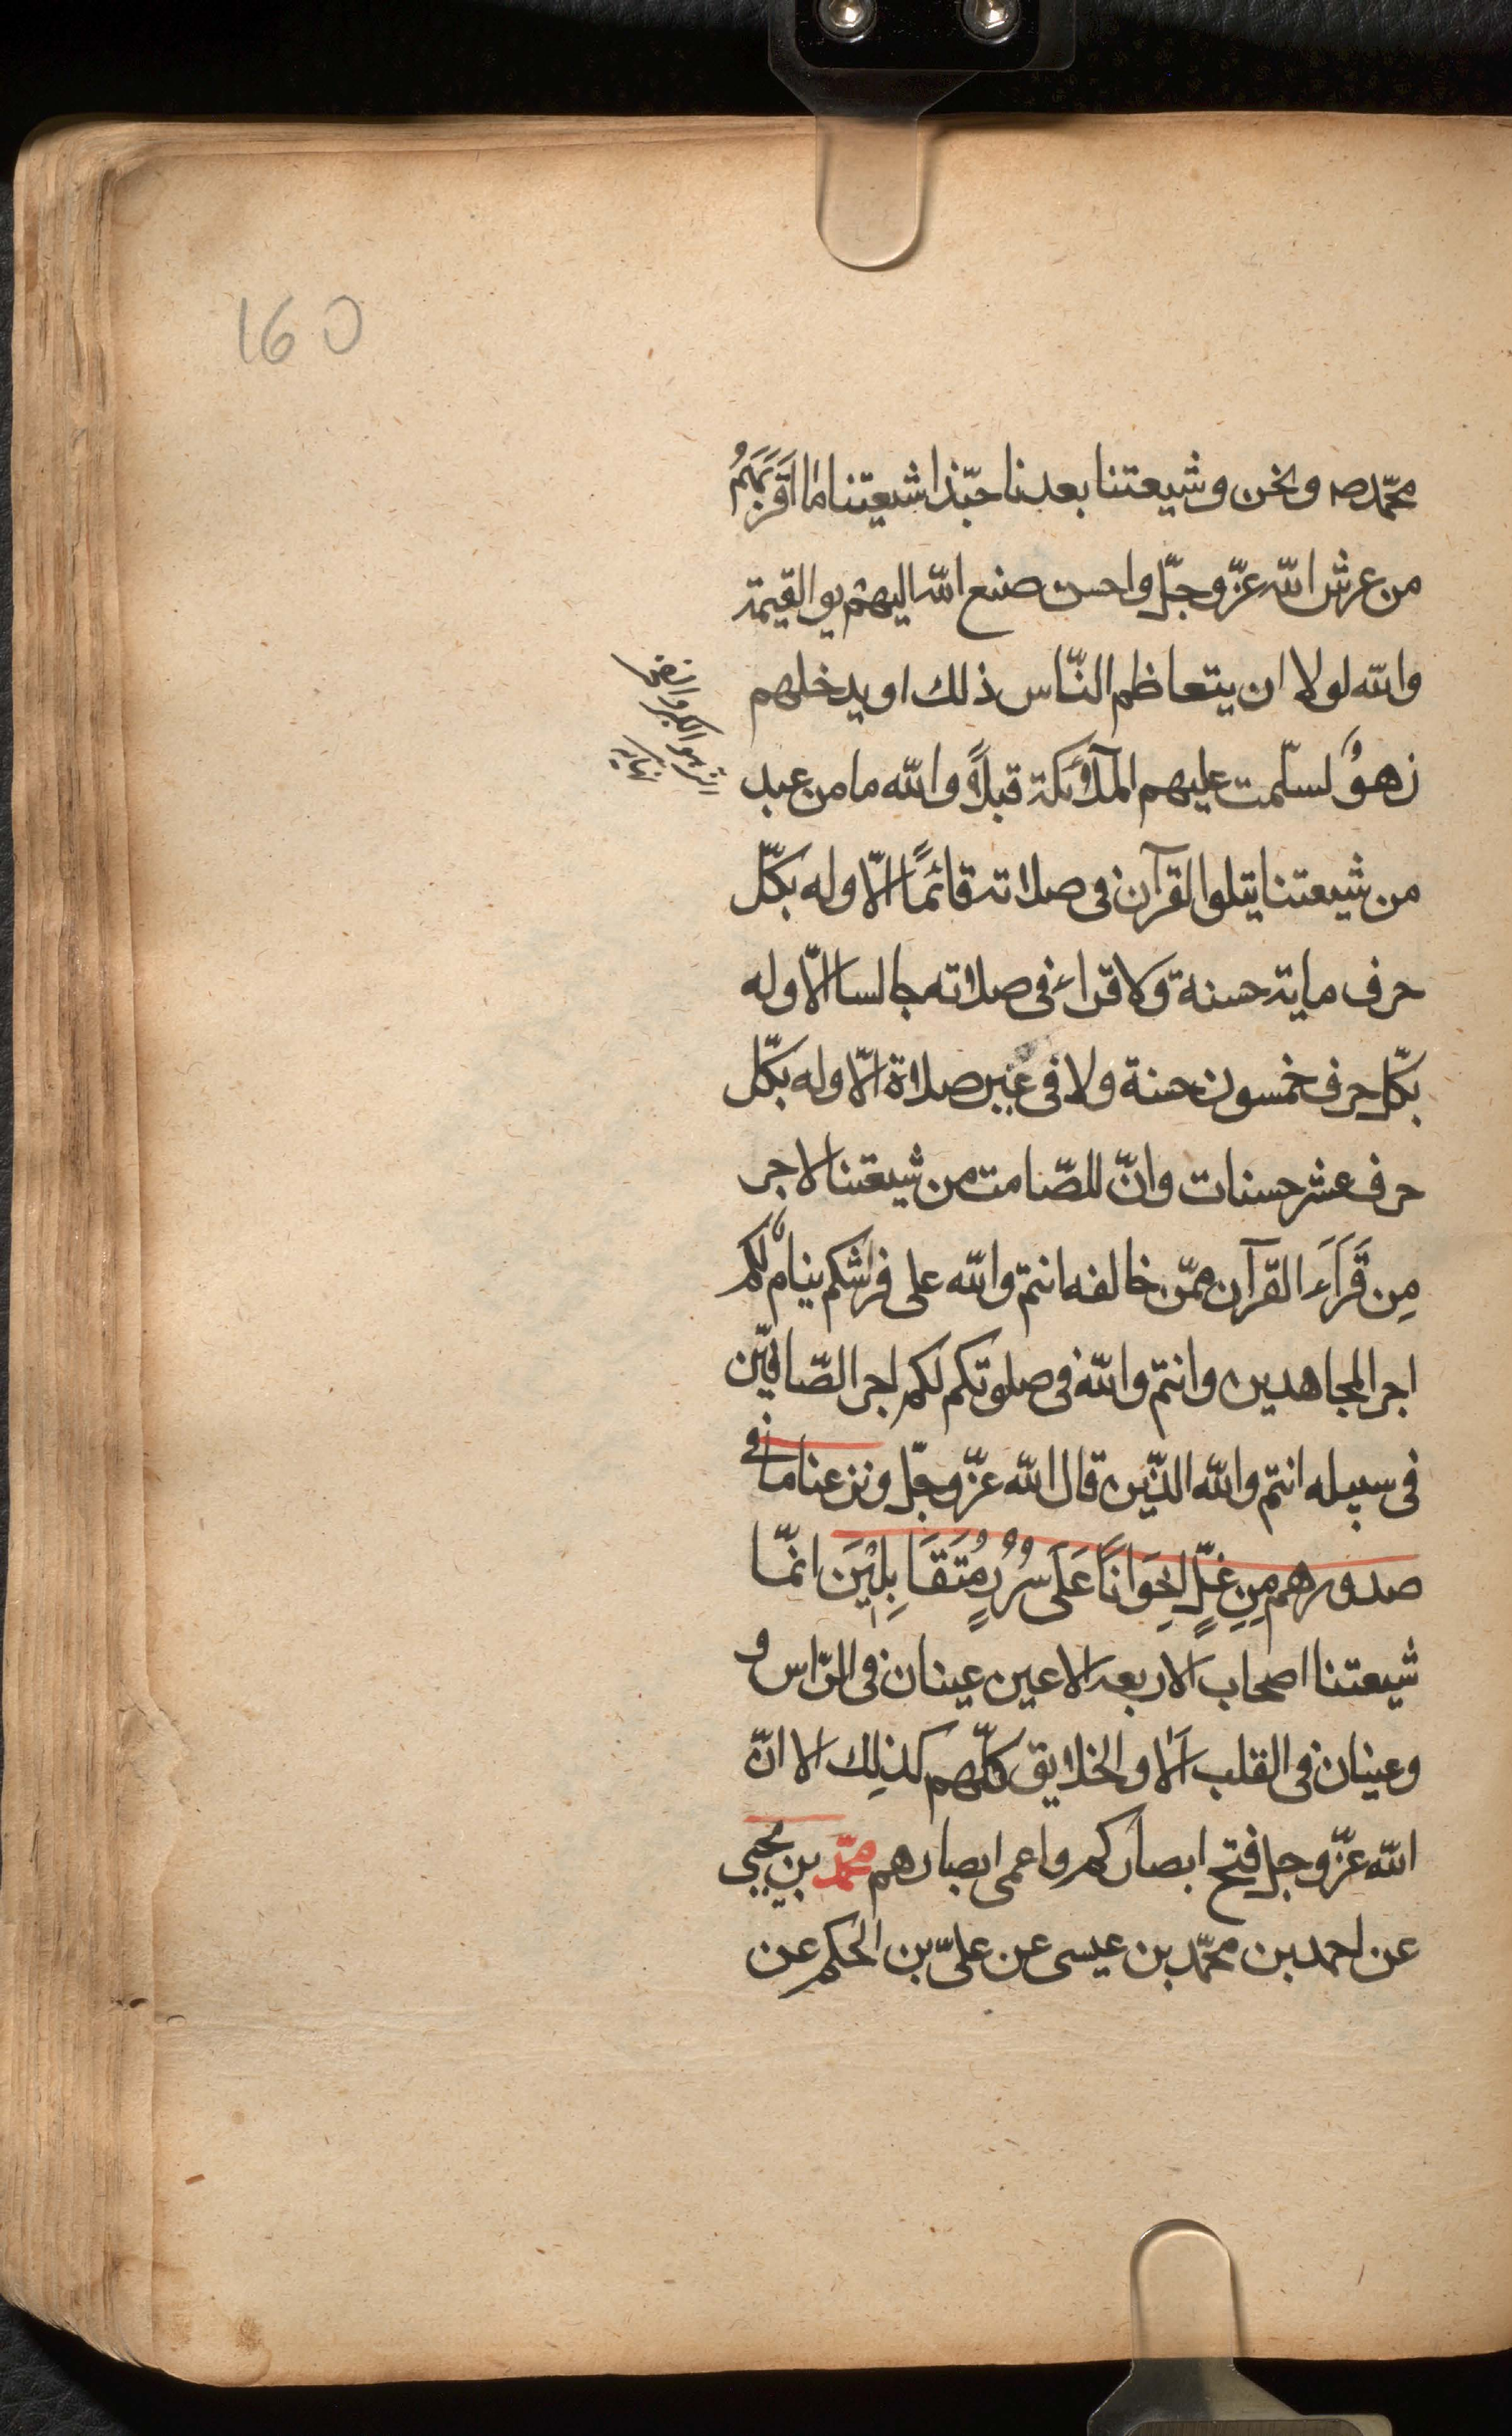 160
محمّد ص ونحن وشيعتنا بعدنا حبّذا شيعتنا ما اقربَهُم
من عرش الله عزّ وجلّ واحسن صنع الله اليهم يوم القيمة
والله لولا ان يتعاظم النّاس ذلك او يدخلهم
زهوٌ لسلّمت عليهم الملآئكة قبلاً والله ما من عبد
الزهو الكبر والفخر
نهاية
من شيعتنا يتلوا القرآن فى صلاته قائمًا الّا وله بكلّ
حرف ماية حسنة ولا قراء فى صلاته جالسا الّا وله
بكلّ حرف خمسون حسنة ولا فى غير صلاة الّا وله بكلّ
حرف عشر حسنات وانّ للصّامت من شيعتنا لاجر
مِن قَرَاَءَ القرآن ممّن خالفه انتم والله على فراشكم ينامٌ لكم
اجر المجاهدين وانتم والله فى صلوتكم لكم اجر الصّافّين
فى سبيله انتم والله الذّين قال الله عزّ وجلّ ونزعنا ما فى
صدورهم مِن غلٍّ اِخوَانَاً عَلَى سُرُرٍ مُتَقَابِلِيْنَ انمّا
شيعتنا اصحاب الاربعه الاعين عينان فى الرّاس و
وعينان فى القلب اَلا والخلايق كلّهم كذلِك الا انّ
الله عزّ وجل فتح ابصاركم واعمى ابصارهم محمّد بن يحيى
عن احمد بن محمّد بن عيسى عن علىّ بن الحكم عن